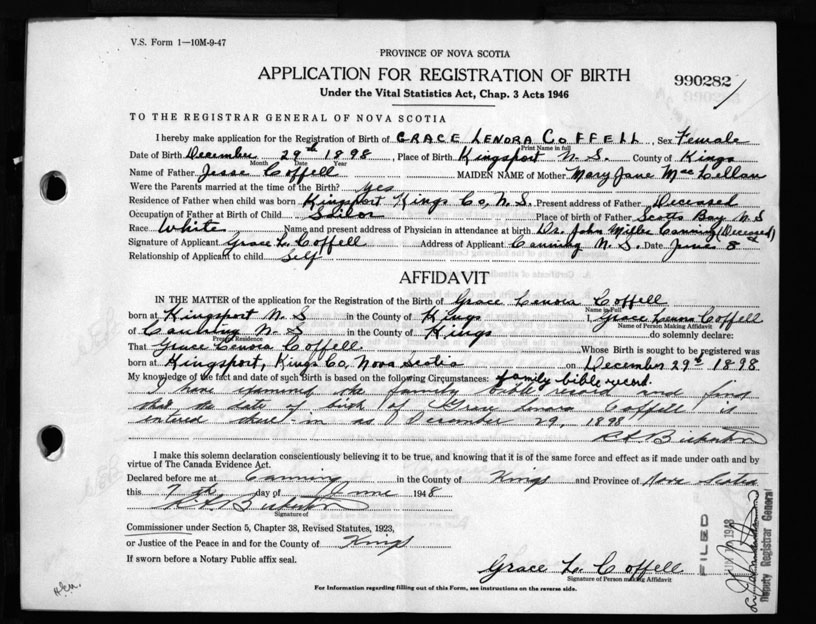 V.S. Form 1—10M-9-47
PROVINCE OF NOVA SCOTIA
APPLICATION FOR REGISTRATION OF BIRTH
990282
Under the Vital Statistics Act, Chap. 3 Acts 1946
TO THE REGISTRAR GENERAL OF NOVA SCOTIA
I hereby make application for the Registration of Birth of GRACE LENORA COFFELL, Sex Female
Print Name in full
Date of Birth December 29th 1898, Place of Birth Kingsport N.S. County of Kings
Month Date Year
Name of Father Jesse Coffell MAIDEN NAME of Mother Mary Jane MacLellan
Were the Parents married at the time of the Birth? yes
Residence of Father when child was born Kingsport Kings Co, N.S. Present address of Father Deceased
Occupation of Father at Birth of Child Sailor Place of birth of Father Scotts Bay N.S
Race White Name and present address of Physician in attendance at birth Dr. John Miller Canning (Deceased)
Signature of Applicant Grace L. Coffell Address of Applicant Canning N.S. Date June 8
Relationship of Applicant to child Self
AFFIDAVIT
IN THE MATTER of the application for the Registration of the Birth of Grace Lenora Coffell
Name in Full
born at Kingsport N.S in the County of Kings I, Grace Lenora Coffell
Name of Person Making Affidavit
of Canning N.S in the County of Kings do solemnly declare:
Present Residence
That Grace Lenora Coffell Whose Birth is sought to be registered was
born at Kingsport, Kings Co, Nova Scotia on December 29th 1898
My knowledge of the fact and date of such Birth is based on the following Circumstances: family bible record.
I have examined the family bible record and find
that the date of birth of Grace Lenora Coffell is
entered there-in as December 29, 1898
I make this solemn declaration conscientiously believing it to be true, and knowing that it is of the same force and effect as if made under oath and by
virtue of The Canada Evidence Act.
Declared before me at Canning in the County of Kings and Province of Nova Scotia
this 9th day of June 1948
Signature of
Commissioner under Section 5, Chapter 38, Revised Statutes, 1923,
or Justice of the Peace in and for the County of Kings
If sworn before a Notary Public affix seal.
Grace L. Coffell
Signature of Person making Affidavit
For Information regarding filling out of this Form, see instructions on the reverse side.
FILED
1948
Deputy Registrar General